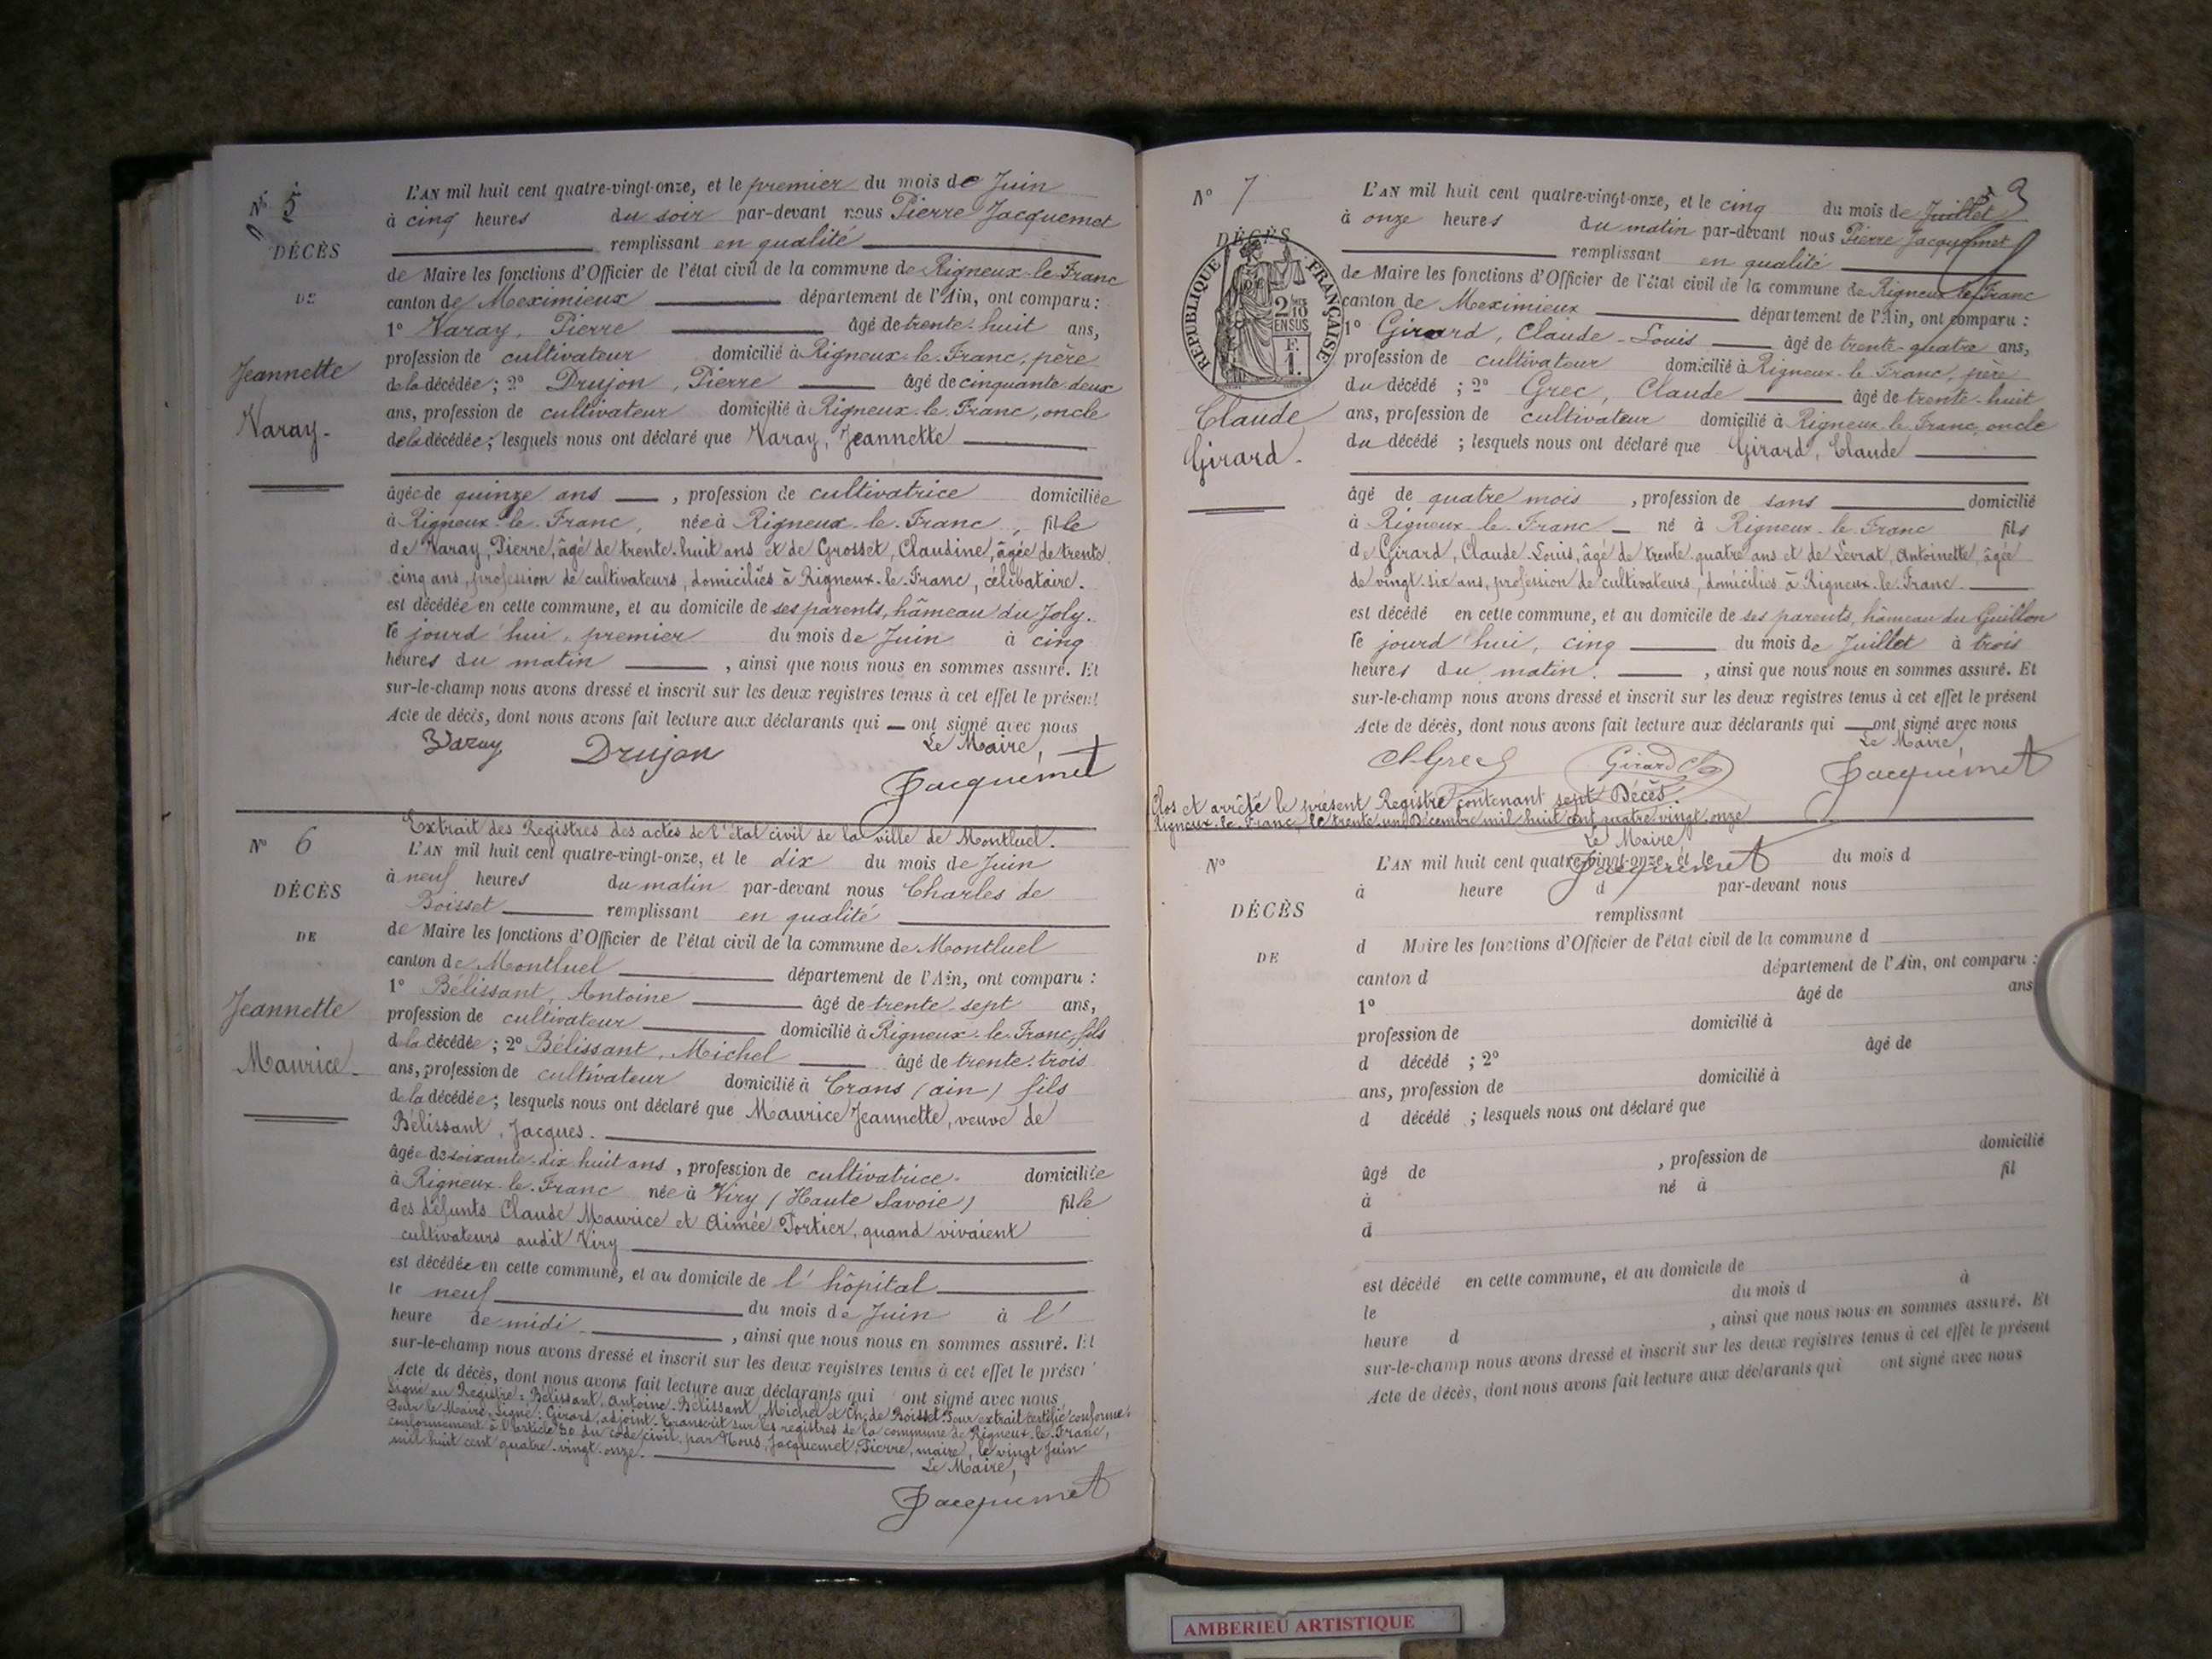 N° 5
DÉCÈS
DE
Jeannette
Varay.
L'AN mil huit cent quatre-vingt-onze, et le premier du mois de Juin
à cinq heures du soir par-devant nous Pierre Jacquemet
remplissant en qualité
de Maire les fonctions d'Officier de l'état civil de la commune de Rigneux-le-Franc
canton de Meximieux département de l'Ain, ont comparu :
1° Varay, Pierre âgé de trente-huit ans,
profession de cultivateur domicilié à Rigneux-le-Franc, père
de la décédée ; 2° Drujon, Pierre âgé de cinquante deux
ans, profession de cultivateur domicilié à Rigneux-le-Franc, oncle
de la décédée ; lesquels nous ont déclaré que Varay, Jeannette
âgée de quinze ans , profession de cultivatrice domiciliée
à Rigneux-le-Franc, née à Rigneux-le-Franc, fille
de Varay, Pierre, âgé de trente-huit ans et de Grosset, Claudine, âgée de trente
cinq ans, profession de cultivateurs, domiciliés à Rigneux-le-Franc, célibataire.
est décédée en cette commune, et au domicile de ses parents, hâmeau du Joly.
le jourd'hui, premier du mois de Juin à cinq
heures du matin , ainsi que nous nous en sommes assuré. Et
sur-le-champ nous avons dressé et inscrit sur les deux registres tenus à cet effet le présent
Acte de décès, dont nous avons fait lecture aux déclarants qui — ont signé avec nous
Le Maire,
Varay Drujon Jacquemet
Extrait des Registres des actes de l'état civil de la ville de Montluel.
N° 6
DÉCÈS
DE
Jeannette
Maurice
L'AN mil huit cent quatre-vingt-onze, et le dix du mois de Juin
à neuf heures du matin par-devant nous Charles de
Boisset remplissant en qualité
de Maire les fonctions d'Officier de l'état civil de la commune de Montluel
canton de Montluel département de l'Ain, ont comparu :
1° Bélissant, Antoine âgé de trente-sept ans,
profession de cultivateur domicilié à Rigneux-le-Franc, fils
de la décédée ; 2° Bélissant, Michel âgé de trente-trois
ans, profession de cultivateur domicilié à Crans (ain) fils
de la décédée ; lesquels nous ont déclaré que Maurice Jeannette, veuve de
Bélissant, Jacques.
âgée de soixante-dix huit ans , profession de cultivatrice domiciliée
à Rigneux-le-Franc née à Viry (Haute Savoie) fille
des défunts Claude Maurice et Aimée Tortier, quand vivaient
cultivateurs audit Viry
est décédée en cette commune, et au domicile de l'hôpital
le neuf du mois de Juin à l'
heure de midi , ainsi que nous nous en sommes assuré. Et
sur-le-champ nous avons dressé et inscrit sur les deux registres tenus à cet effet le présent
Acte de décès, dont nous avons fait lecture aux déclarants qui ont signé avec nous
Signé au Registre : Bélissant, Antoine. Bélissant, Michel et Ch. de Boisset. Pour extrait certifié conforme.
Pour le Maire, Signé : Girard, adjoint. Transcrit sur les registres de la commune de Rigneux-le-Franc,
conformément à l'article 80 du code civil par Nous, Jacquemet, Pierre, maire, le vingt Juin
mil huit cent quatre-vingt-onze.
Le Maire,
Jacquemet
3
N° 7
DÉCÈS
RÉPUBLIQUE FRANÇAISE
2/10 EN SUS
F.
1.
Claude
Girard.
L'AN mil huit cent quatre-vingt-onze, et le cinq du mois de Juillet
à onze heures du matin par-devant nous Pierre Jacquemet
remplissant en qualité
de Maire les fonctions d'Officier de l'état civil de la commune de Rigneux-le-Franc
canton de Meximieux département de l'Ain, ont comparu :
1° Girard, Claude-Louis âgé de trente-quatre ans,
profession de cultivateur domicilié à Rigneux-le-Franc, père
du décédé ; 2° Grec, Claude âgé de trente-huit
ans, profession de cultivateur domicilié à Rigneux-le-Franc, oncle
du décédé ; lesquels nous ont déclaré que Girard, Claude
âgé de quatre mois , profession de sans domicilié
à Rigneux-le-Franc né à Rigneux-le-Franc fils
de Girard, Claude-Louis, âgé de trente-quatre ans et de Levrat, Antoinette, âgée
de vingt-six ans, profession de cultivateurs, domiciliés à Rigneux-le-Franc.
est décédé en cette commune, et au domicile de ses parents, hâmeau du Guillon
le jourd'hui, cinq du mois de Juillet à trois
heures du matin , ainsi que nous nous en sommes assuré. Et
sur-le-champ nous avons dressé et inscrit sur les deux registres tenus à cet effet le présent
Acte de décès, dont nous avons fait lecture aux déclarants qui — ont signé avec nous
Le Maire,
Grec Girard Jacquemet
Clos et arrêté le présent Registre contenant sept Décès.
Rigneux-le-Franc, le trente un Décembre mil huit cent quatre vingt onze
Le Maire,
Jacquemet
N°
DÉCÈS
DE
L'AN mil huit cent quatre-vingt-onze, et le du mois d
à heure d par-devant nous
remplissant
d Maire les fonctions d'Officier de l'état civil de la commune d
canton d département de l'Ain, ont comparu :
1° âgé de ans
profession de domicilié à
d décédé ; 2° âgé de
ans, profession de domicilié à
d décédé ; lesquels nous ont déclaré que
âgé de , profession de domicilié
à né à fil
d
est décédé en cette commune, et au domicile de
le du mois d à
heure d , ainsi que nous nous en sommes assuré. Et
sur-le-champ nous avons dressé et inscrit sur les deux registres tenus à cet effet le présent
Acte de décès, dont nous avons fait lecture aux déclarants qui ont signé avec nous
AMBERIEU ARTISTIQUE